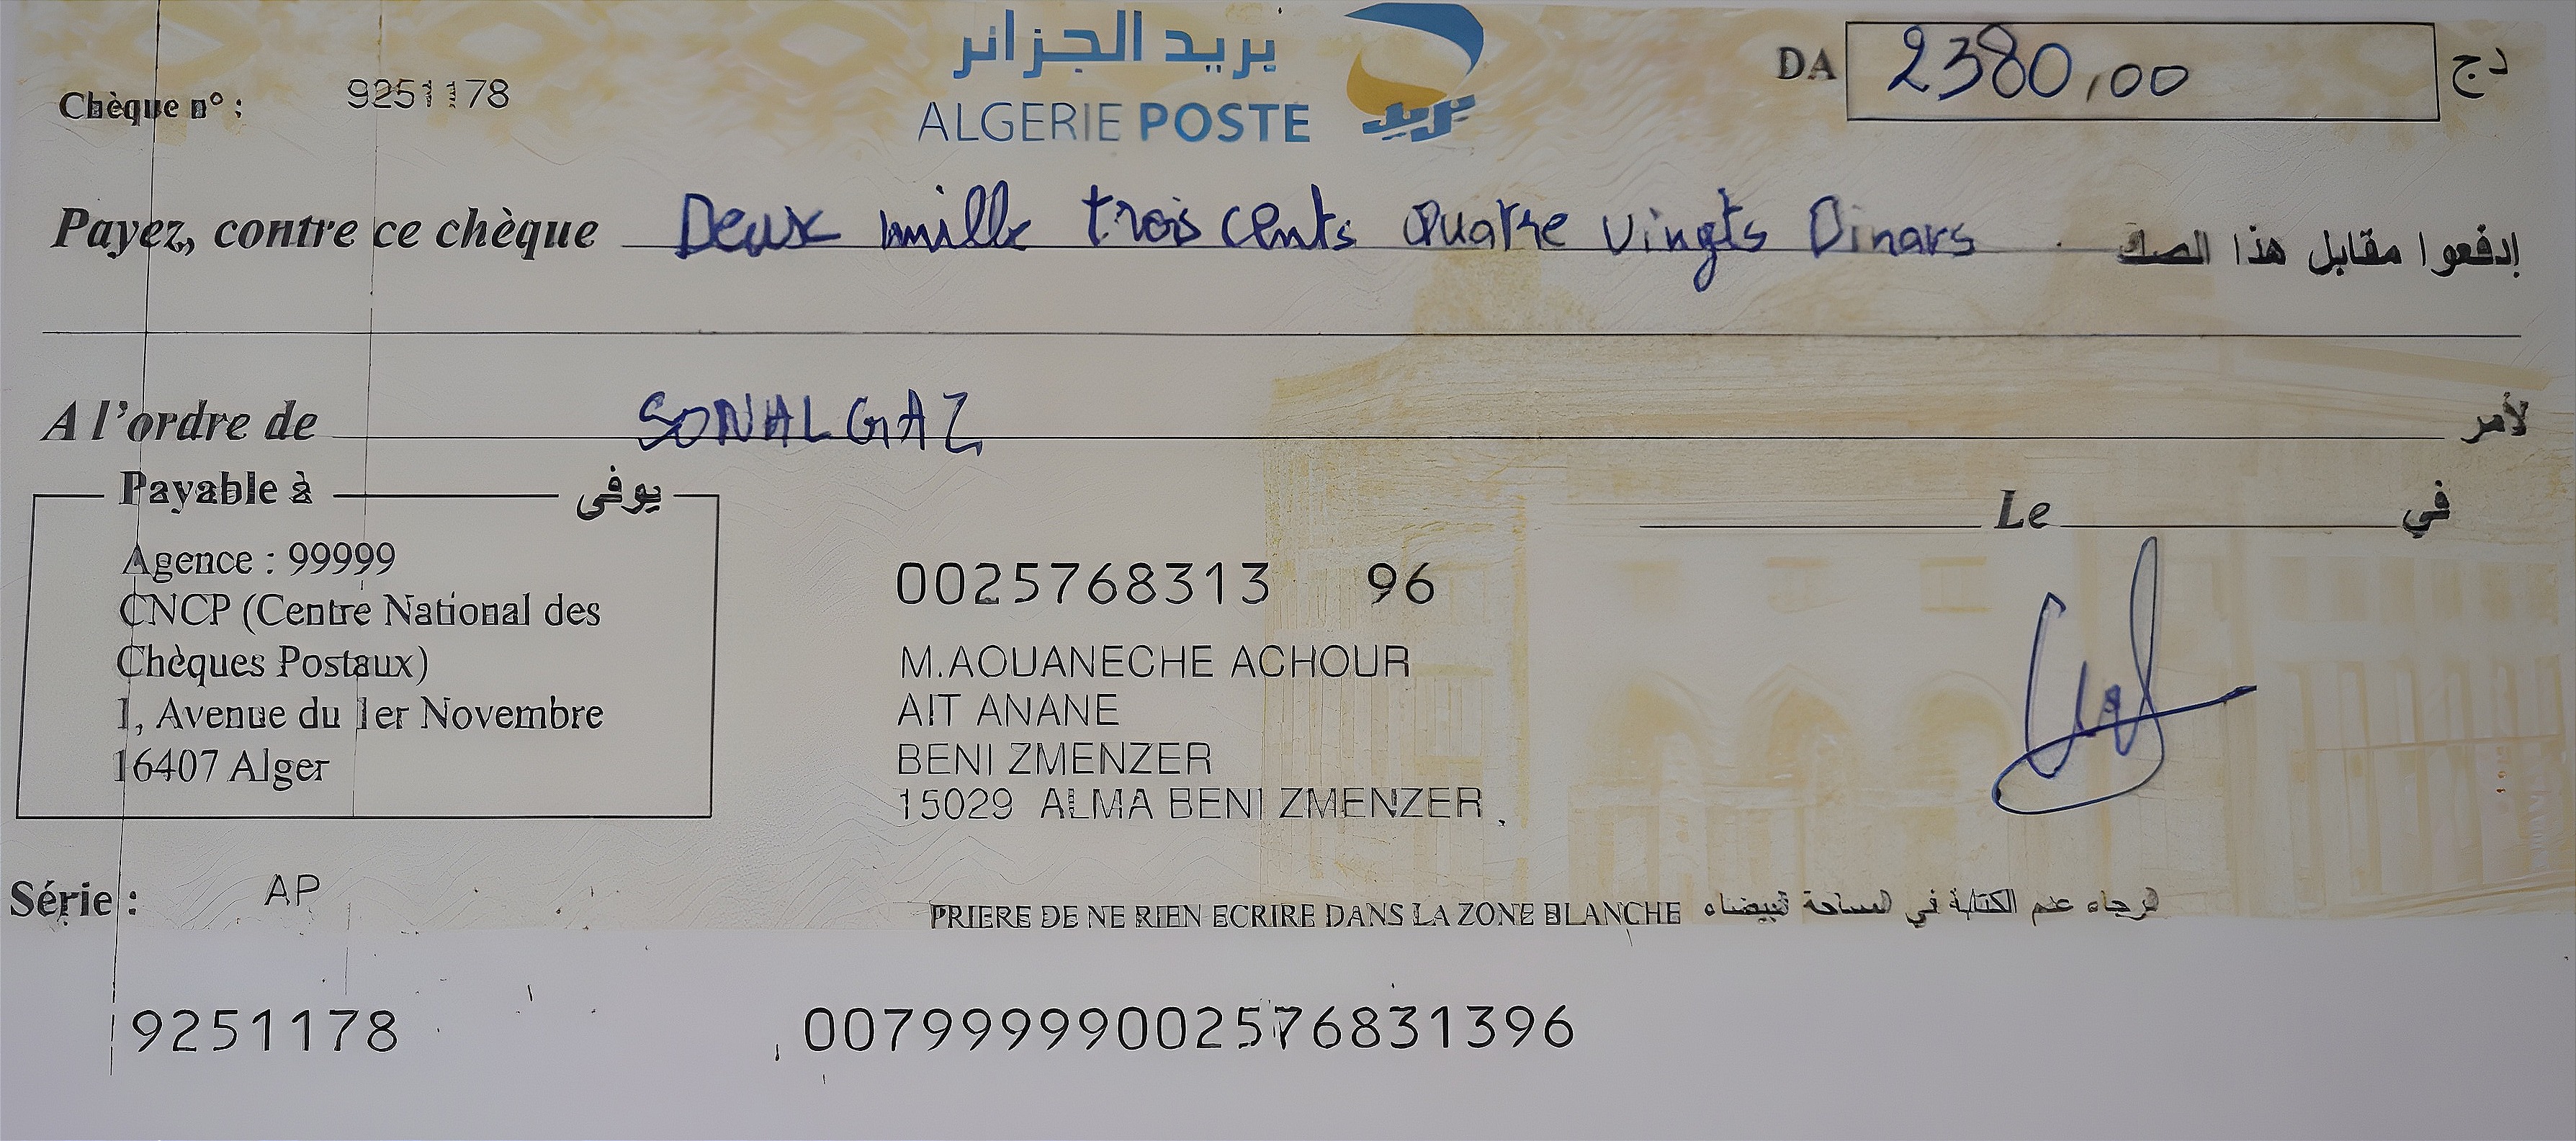 بريد الجزائر
ALGERIE POSTE
بريد
Chèque n° : 9251178
DA 2380,00 دج
Payez, contre ce chèque Deux mille trois cents Quatre vingts Dinars إدفعوا مقابل هذا الصك
A l'ordre de SONALGAZ لأمر
Payable à يوفى
Agence : 99999
CNCP (Centre National des
Chèques Postaux)
1, Avenue du 1er Novembre
16407 Alger
Le في
0025768313 96
M.AOUANECHE ACHOUR
AIT ANANE
BENI ZMENZER
15029 ALMA BENI ZMENZER
Série : AP
PRIERE DE NE RIEN ECRIRE DANS LA ZONE BLANCHE الرجاء عدم الكتابة في المساحة البيضاء
9251178 00799999002576831396